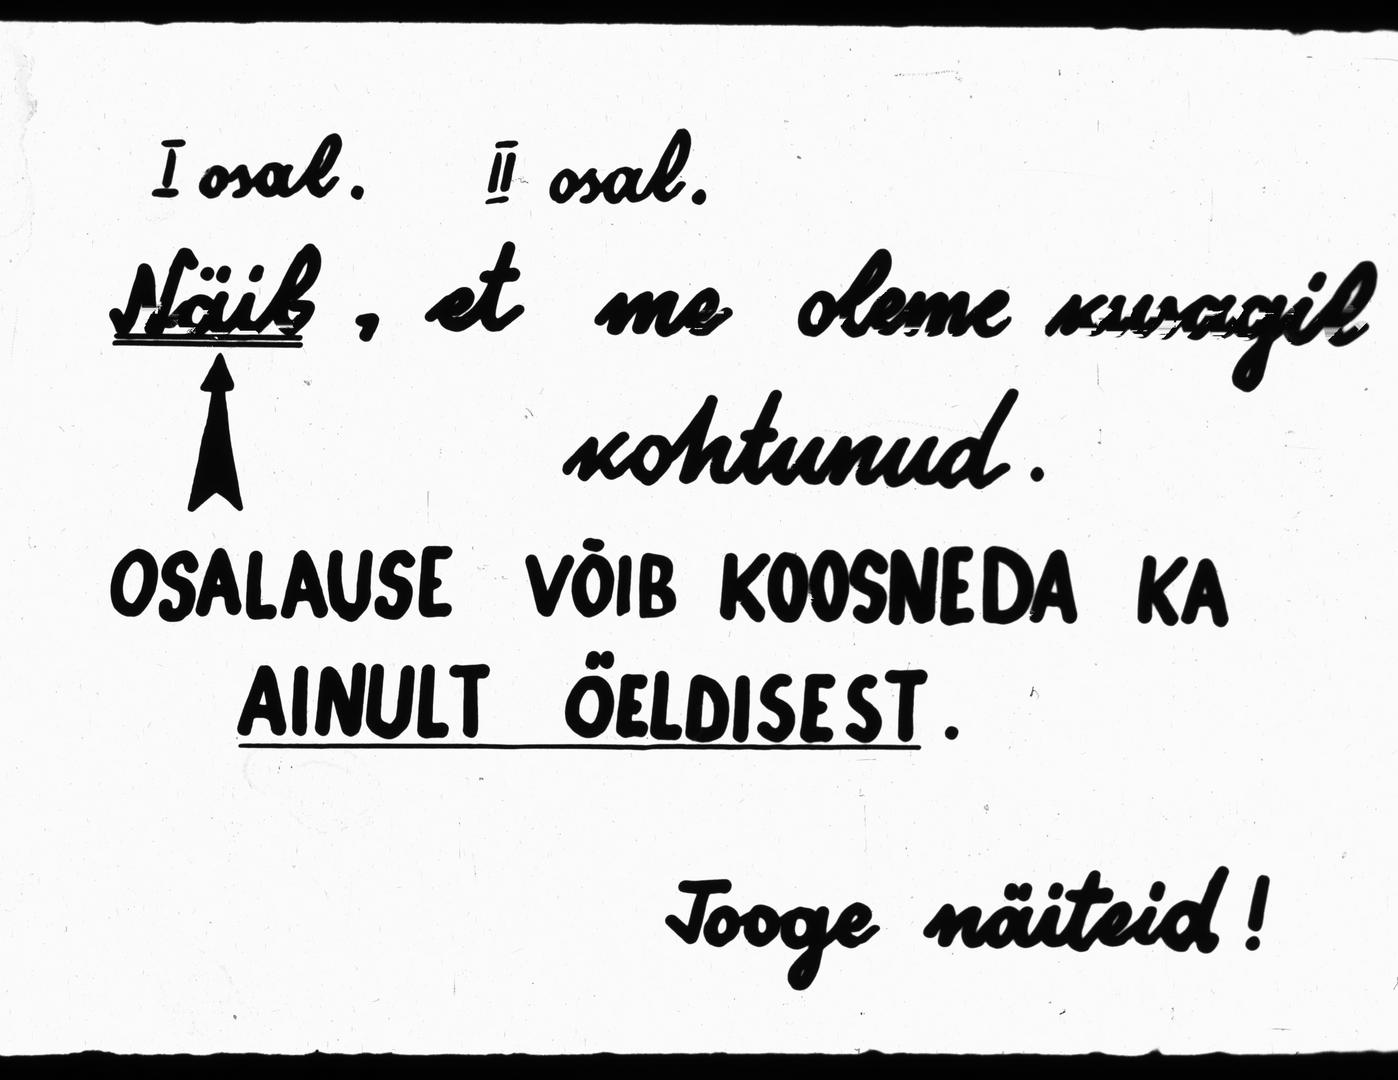 I osal. II osal.
Näib, et me oleme kusagil
kohtunud.
OSALAUSE VÕIB KOOSNEDA KA
AINULT ÖELDISEST.
Tooge näiteid!